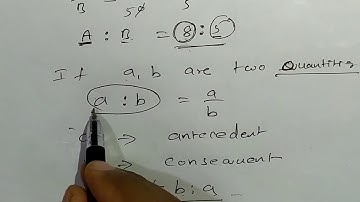 B 50 5
A : B = 8 : 5
If a, b are two Quantities
a : b = a
b
→ antecedent
→ consequent
b : a